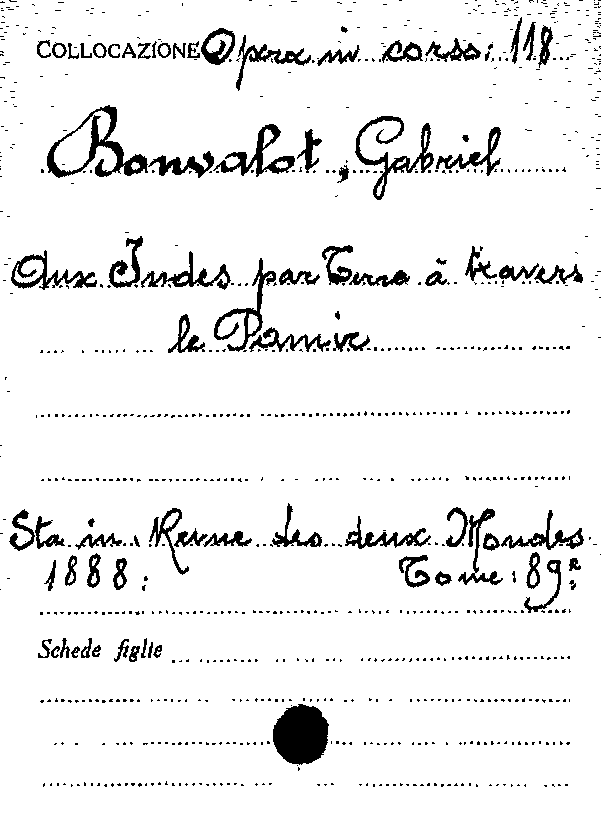 COLLOCAZIONE Opera in corso: 118
Bonvalot, Gabriel
Aux Indes par Terre à travers
le Pamir
Sta in. Revue des deux Mondes
1888: Tome: 89e.
Schede figlie